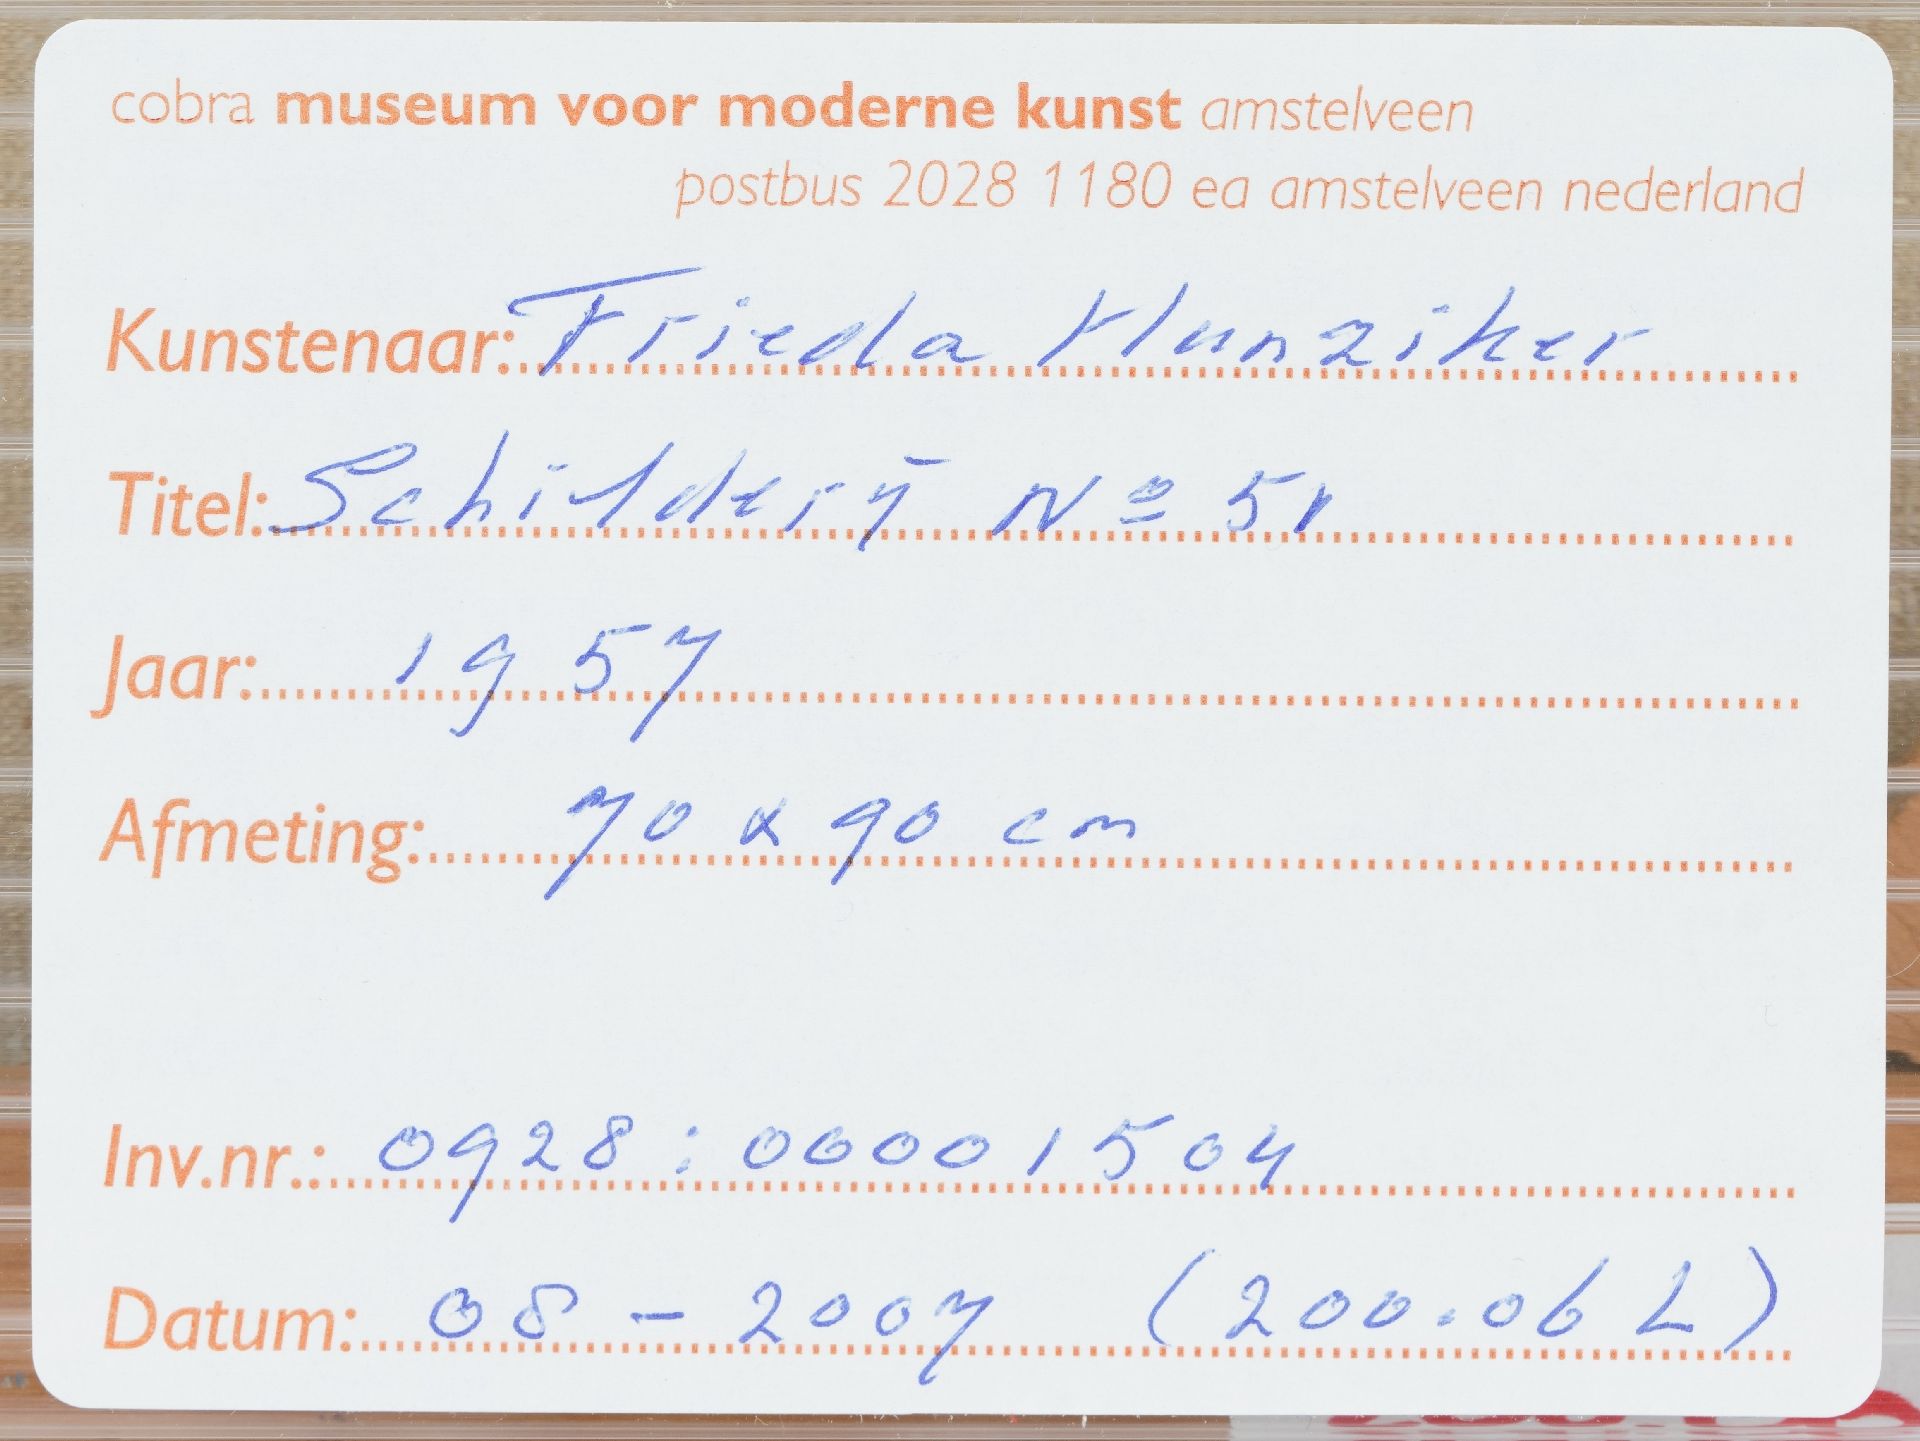 cobra museum voor moderne kunst amstelveen
postbus 2028 1180 ea amstelveen nederland
Kunstenaar: Frieda Hunziker
Titel: Schilderij Nº 51
Jaar: 1957
Afmeting: 70 x 90 cm
Inv.nr.: 0928:00001504
Datum: 08-2007 (200.06 L)